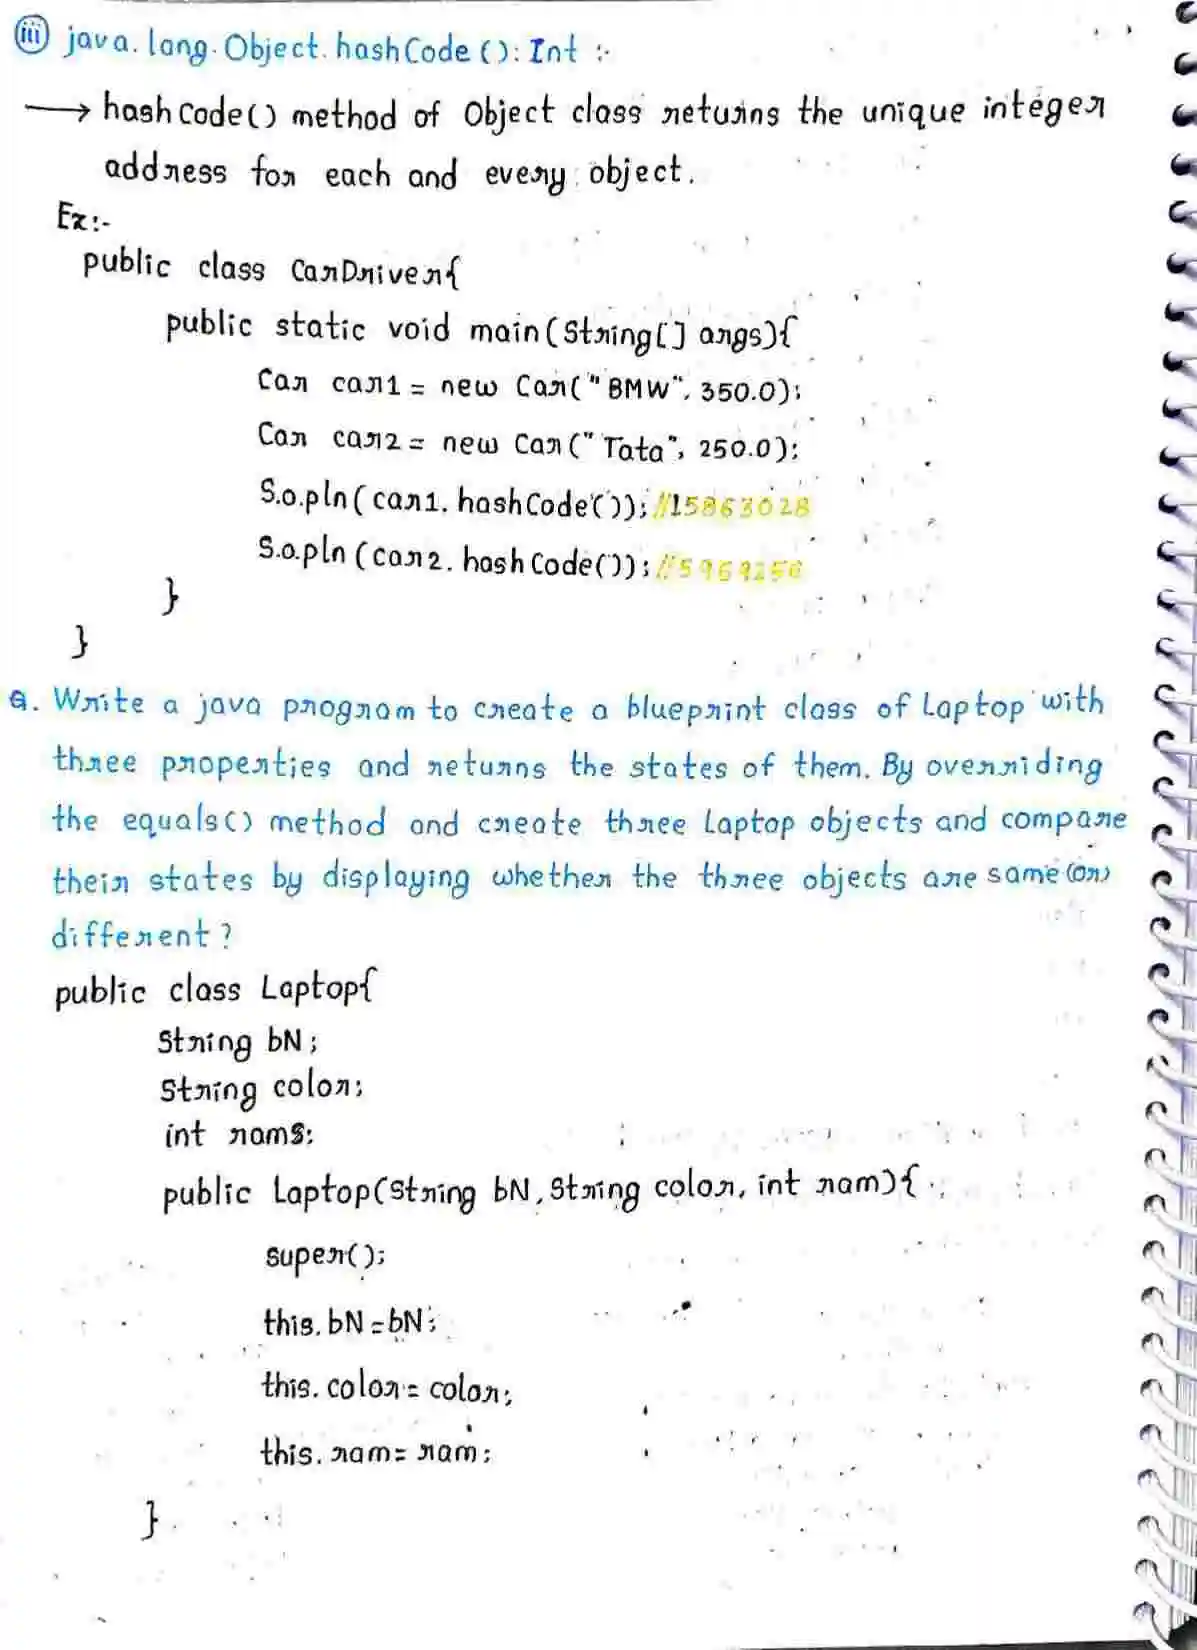 (iii) java.lang.Object.hashCode(): Int :-
→ hashCode() method of Object class returns the unique integer
address for each and every object.
Ex:-
public class CarDriver{
public static void main(String[] args){
Car car1 = new Car("BMW", 350.0);
Car car2 = new Car("Tata", 250.0);
S.o.pln(car1.hashCode()); //15863028
S.o.pln(car2.hashCode());
}
}
Q. Write a java program to create a blueprint class of Laptop with
three properties and returns the states of them. By overriding
the equals() method and create three Laptop objects and compare
their states by displaying whether the three objects are same (or)
different?
public class Laptop{
String bN;
String color;
int rams;
public Laptop(String bN, String color, int ram){
super();
this.bN = bN;
this.color = color;
this.ram = ram;
}